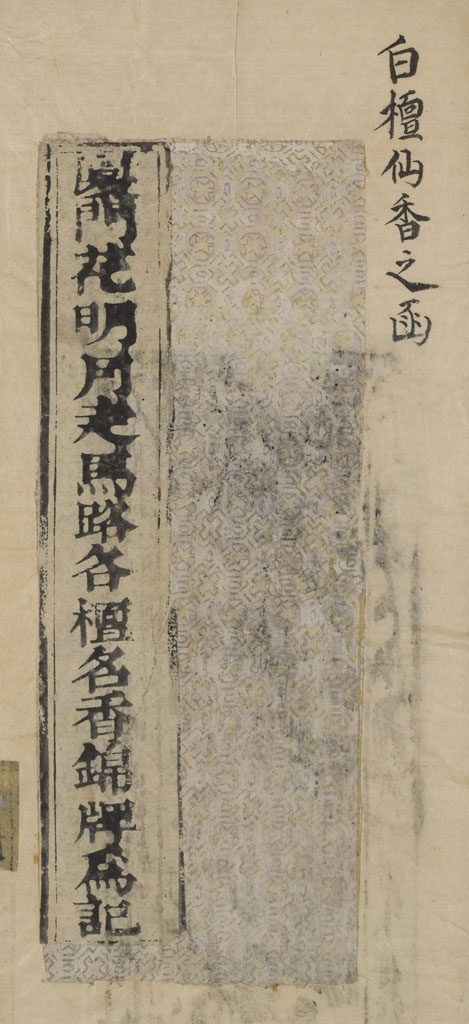 白檀仙香之函
花明月走馬路各檀名香錦牌爲記